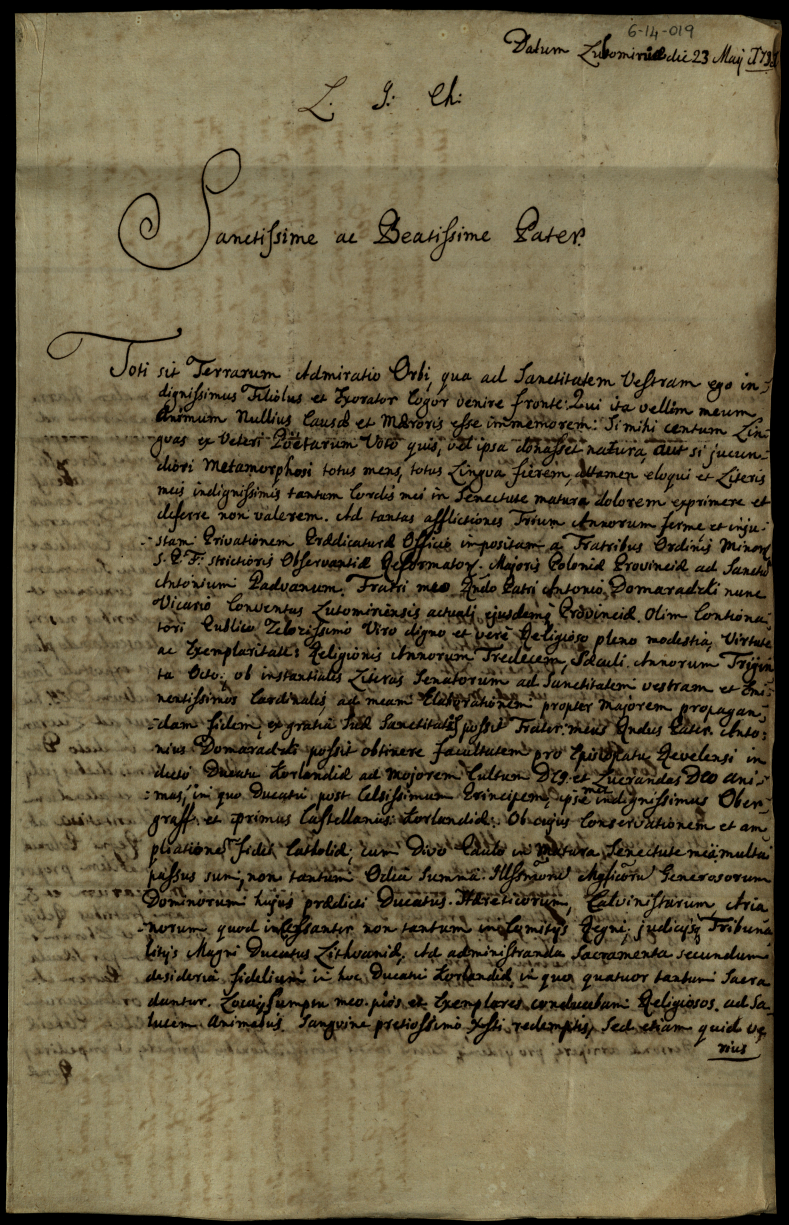 6-14-019
Datum Lutominiæ die 23 Maij
L. J. Ch:
Sanctissime ac Beatissime Pater.
Toti sit Terrarum Admiratio Orbi, qua ad Sanctitatem Vestram ego in-
dignissimus Filiolus et Exorator cogor venire fronte: Qui ita vellem meum
Animum Nullius Causæ et Mæroris esse immemorem: Si mihi centum Lin-
guas ex Veteri Pöetarum Voto quis, vel ipsa donasset natura, aut si jucun-
diori Metamorphosi totus mens, totus Lingua fierem, attamen eloqui et Literis
meis indignissimis tantum Cordis mei in Senectute matura dolorem exprimere et
deferre non valerem. Ad tantas afflictiones Trium Annorum ferme et inju-
stam Privationem Prædicaturæ Officio impositam a Fratribus Ordinis Minor
S. P. F. strictioris Observantiæ Reformator. Majoris Poloniæ Provinciæ ad Sanctu
Antonium Padvanum. Fratri meo Rndo Patri Antonio Domaradzki nunc
Vicario Conventus Lutominensis actuali ejusdemq Provinciæ. Olim Contiona-
tori Publico Zelozissimo Viro digno et vere Religioso pleno modestia, Virtute
ac Exemplaritate: Religionis Annorum Tredecem, Sæculi Annorum Trigin
ta Octo: ob instantiales Literas Senatorum ad Sanctitatem vestram et Emi-
nentissimos Cardinales ad meam Elaborationem propter majorem propagan-
dam fidem, ex gratia Suæ Sanctitatis possit Frater meus Rndus Pater Anto-
nius Domaradzki possit obtinere facultatem pro Episcopatu Revelensi in
dicto Ducatu Korlandiæ ad majorem Cultum D̃ei et Lucrandas Deo ani-
-mas, in quo Ducatu post Celsissimum Principem, ipsemet indignissimus Ober-
graff. et primus Castellanus Korlandiæ. Ob cujus Conservationem et am
pliatione fidei Catholiæ, cum Divo Paulo in matura Senectute mea multa
passus sum, non tantum Odia Summa Illstrium Mgficoru Generosorum
Dominorum hujus prædicti Ducatus Hæreticorum, Calvinistarum Aria
norum quod incessanter non tantum in Comitijs Regni, judicijsq Tribuna
litijs Magni Ducatus Lithvaniæ, Ad administranda Sacramenta secundum
desideria fidelium in hoc Ducatu Korlandiæ in quo quatuor tantum Sacra
dantur. Loca, sumptu meo pios et Exemplares conducebam Religiosos ad Sa-
lutem Animabus Sanguine pretiossimo Xsti redemptis, Sed etiam quid ve
rius